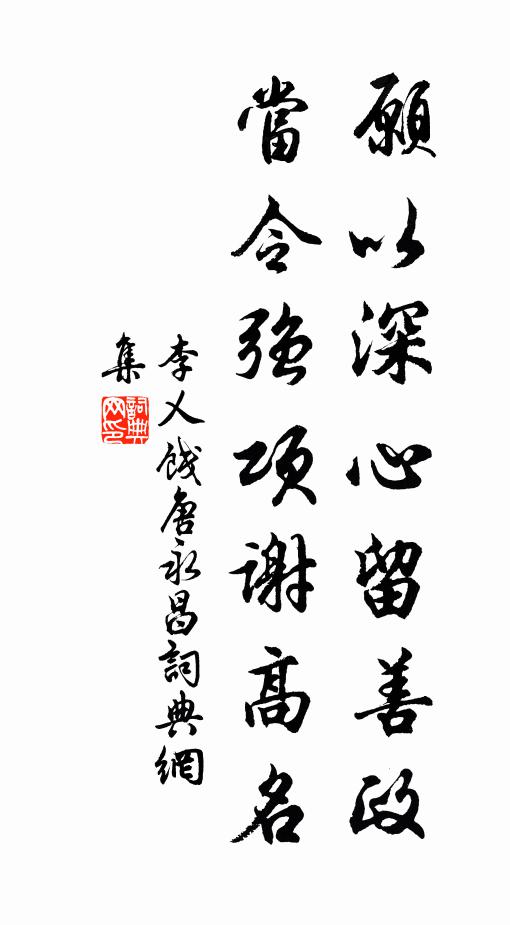 願以深心留善政
當令強項謝高名
李乂餞唐永昌詞典網
集
詞典网印